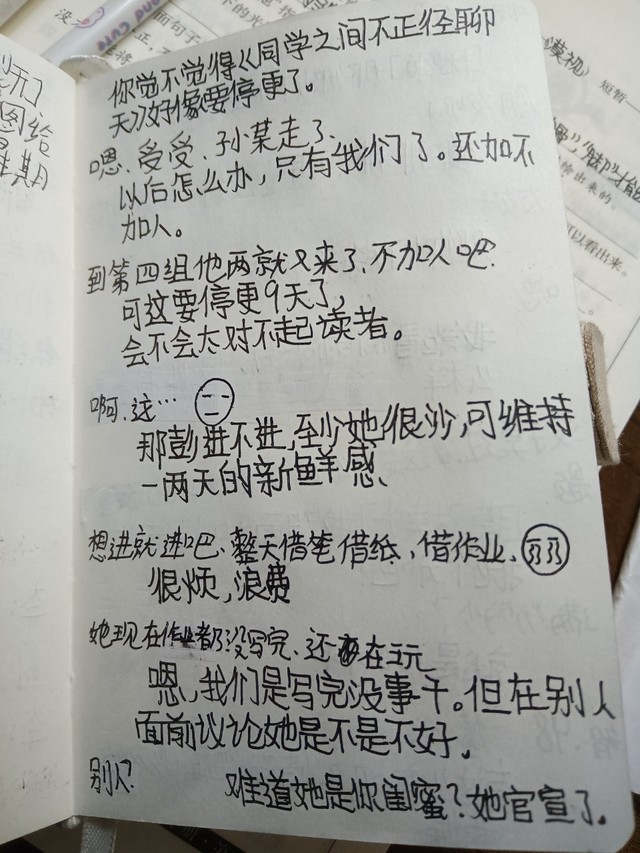 你觉不觉得《同学之间不正经聊
天》好像要停更了。
嗯、受受、孙某走了、
以后怎么办,只有我们了。还加不
加人。
到第四组他两就又来了、不加人吧.
可这要停更9天了,
会不会太对不起读者。
啊,这…
那彭进不进,至少她很沙,可维持
一两天的新鲜感、
想进就进吧、整天借笔借纸,借作业、
很烦,浪费
她现在作业都没写完、还在玩
嗯,我们是写完没事干。但在别人
面前议论她是不是不好。
别人?
难道她是你闺蜜?她官宣了。
玩了
图给
星期
没
面句子
下的光
漠视》
短暂一
给出来的。
可以看出来。